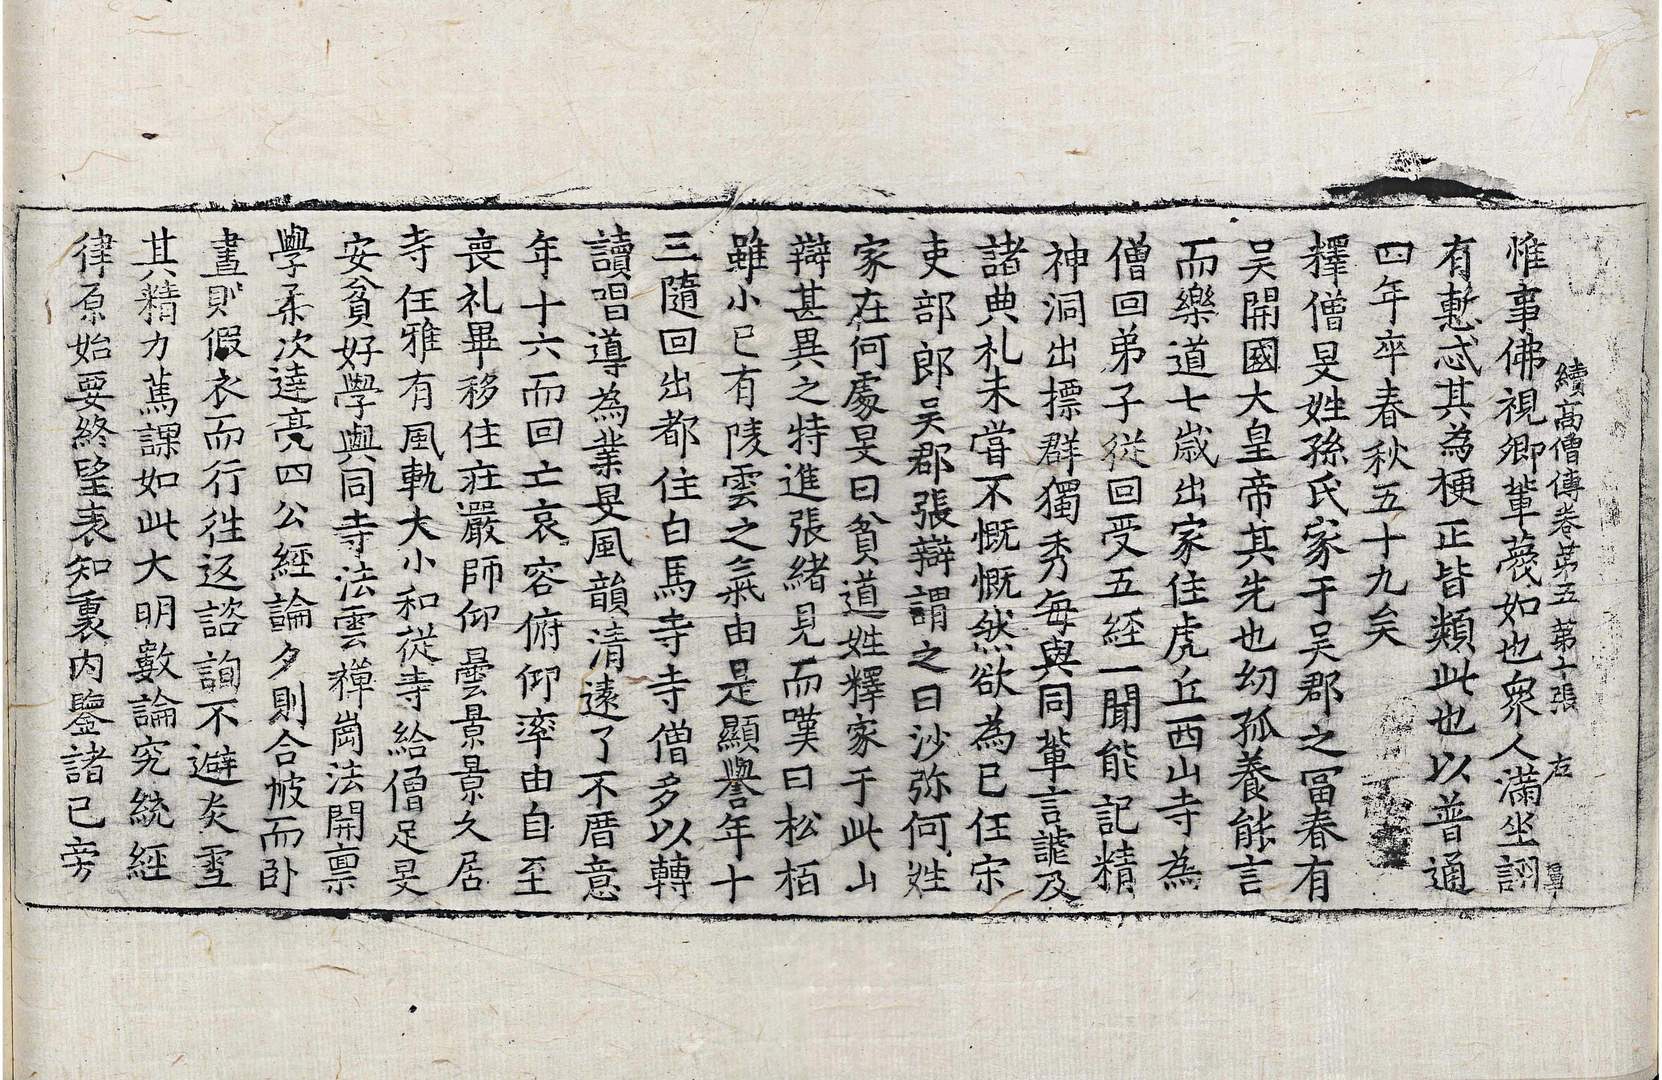 續高僧傳卷第五 第十張 左
惟事佛視卿輩蔑如也衆人滿坐詡
有慙忒其為梗正皆類此也以普通
四年卒春秋五十九矣
釋僧旻姓孫氏家于吴郡之冨春有
吴開國大皇帝其先也㓜孤養能言
而樂道七歲出家住虎丘西山寺為
僧回弟子從回受五經一聞能記精
神洞出摽群獨秀每與同輩言謔及
諸典礼未甞不慨慨然欲為己任宋
吏部郎吴郡張辯謂之曰沙弥何姓
家在何處旻曰貧道姓釋家于此山
辯甚異之特進張緒見而嘆曰松栢
雖小已有陵雲之氣由是顯譽年十
三隨回出都住白馬寺寺僧多以轉
讀唱導為業旻風韻清遠了不厝意
年十六而回亡哀容俯仰率由自至
喪礼畢移住莊嚴師仰曇景景久居
寺任雅有風軌大小和從寺給僧足旻
安貧好學與同寺法雲禪崗法開稟
學柔次達亮四公經論夕則合帔而卧
晝則假衣而行往返諮詢不避炎雪
其精力篤課如此大明數論究統經
律原始要終望表知裏内鑒諸己旁